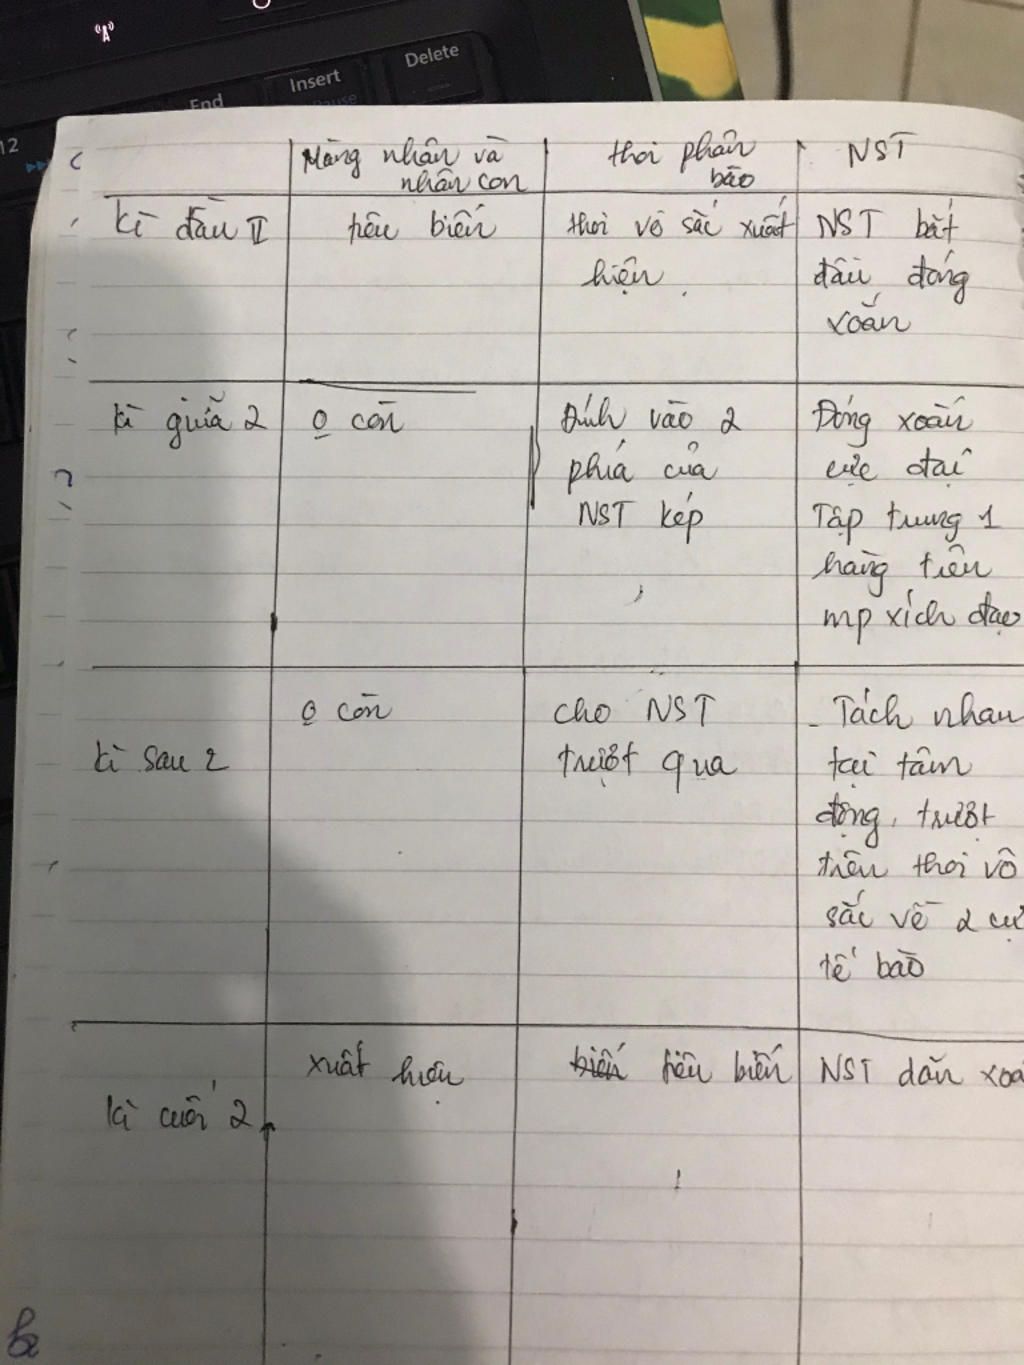 Delete
Insert
Pause
End
12
Màng nhân và
nhân con
thoi phân
bào
NST
kì đầu II
tiêu biến
thoi vô sắc xuất
hiện
NST bắt
đầu đóng
xoắn
kì giữa 2
o còn
Đính vào 2
phía của
NST kép
Đóng xoắn
cực đại
Tập trung 1
hàng trên
mp xích đạo
kì sau 2
o còn
cho NST
trượt qua
- Tách nhau
tại tâm
động, trượt
trên thoi vô
sắc về 2 cự
tế bào
kì cuối 2
xuất hiện
biến tiêu biến
NST dãn xoắ